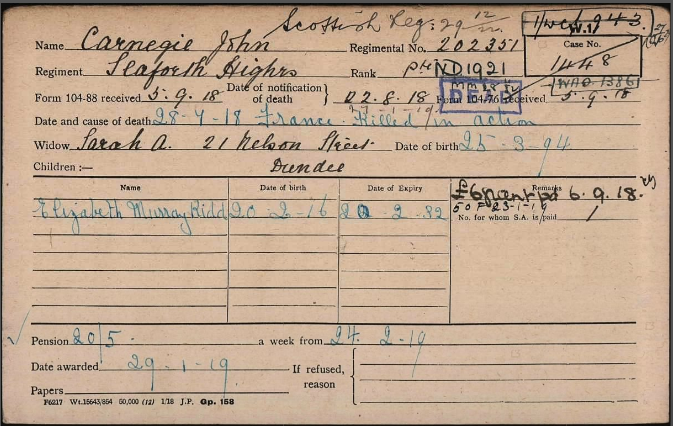 Scottish Reg: 29 12
W.1/
Name Carnegie John Regimental No. 202351
Case No.
1448
Regiment Seaforth Highrs Rank Pte ND 1921
DEAD
WAO 1386
Form 104-88 received 5.9.18 Date of notification of death 02.8.18 Form 104-76 received 5.9.18
Date and cause of death 28-7-18 France. Killed in action
Widow Sarah A. 21 Nelson Street Date of birth 25-3-94
Children :— Dundee
Name Date of birth Date of Expiry Remarks
6.9.18.
50 F 23-1-19
No. for whom S.A. is paid 1
Elizabeth Murray Kidd 20 2-16 20-2-32
Pension 20/5. a week from 24. 2-19
Date awarded 29-1-19 If refused, reason
Papers
P6217 Wt.15643/854 50,000 (12) 1/18 J.P. Gp. 158